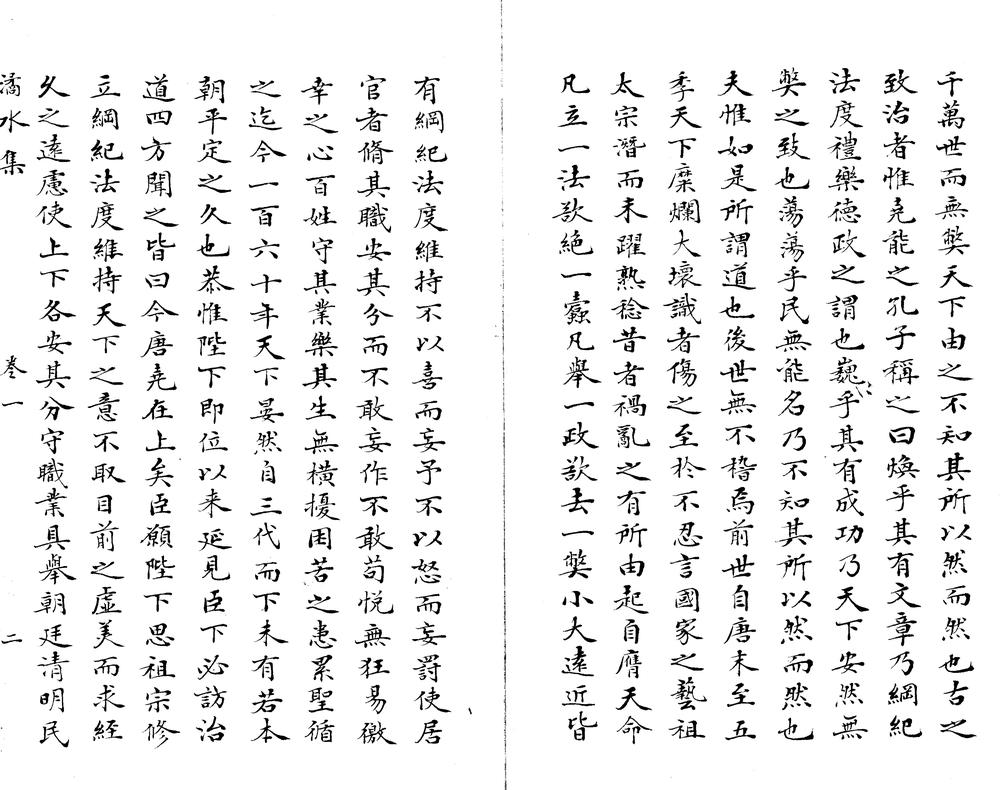 千萬世而無獘天下由之不知其所以然而然也古之
致治者惟堯能之孔子稱之曰煥乎其有文章乃綱紀
法度禮樂德政之謂也巍〻乎其有成功乃天下安然無
獘之致也蕩蕩乎民無能名乃不知其所以然而然也
夫惟如是所謂道也後世無不稽焉前世自唐末至五
季天下糜爛大壞識者傷之至於不忍言國家之藝祖
太宗潛而未躍熟稔昔者禍亂之有所由起自膺天命
凡立一法欲絶一蠹凡舉一政欲去一獘小大遠近皆
有綱紀法度維持不以喜而妄予不以怒而妄罸使居
官者脩其職安其分而不敢妄作不敢苟悦無狂易徼
幸之心百姓守其業樂其生無橫擾困苦之患累聖循
之迄今一百六十年天下晏然自三代而下未有若本
朝平定之久也恭惟陛下即位以来延見臣下必訪治
道四方聞之皆曰今唐堯在上矣臣願陛下思祖宗修
立綱紀法度維持天下之意不取目前之虛美而求經
久之遠慮使上下各安其分守職業具舉朝廷清明民
潏水集 卷一 二